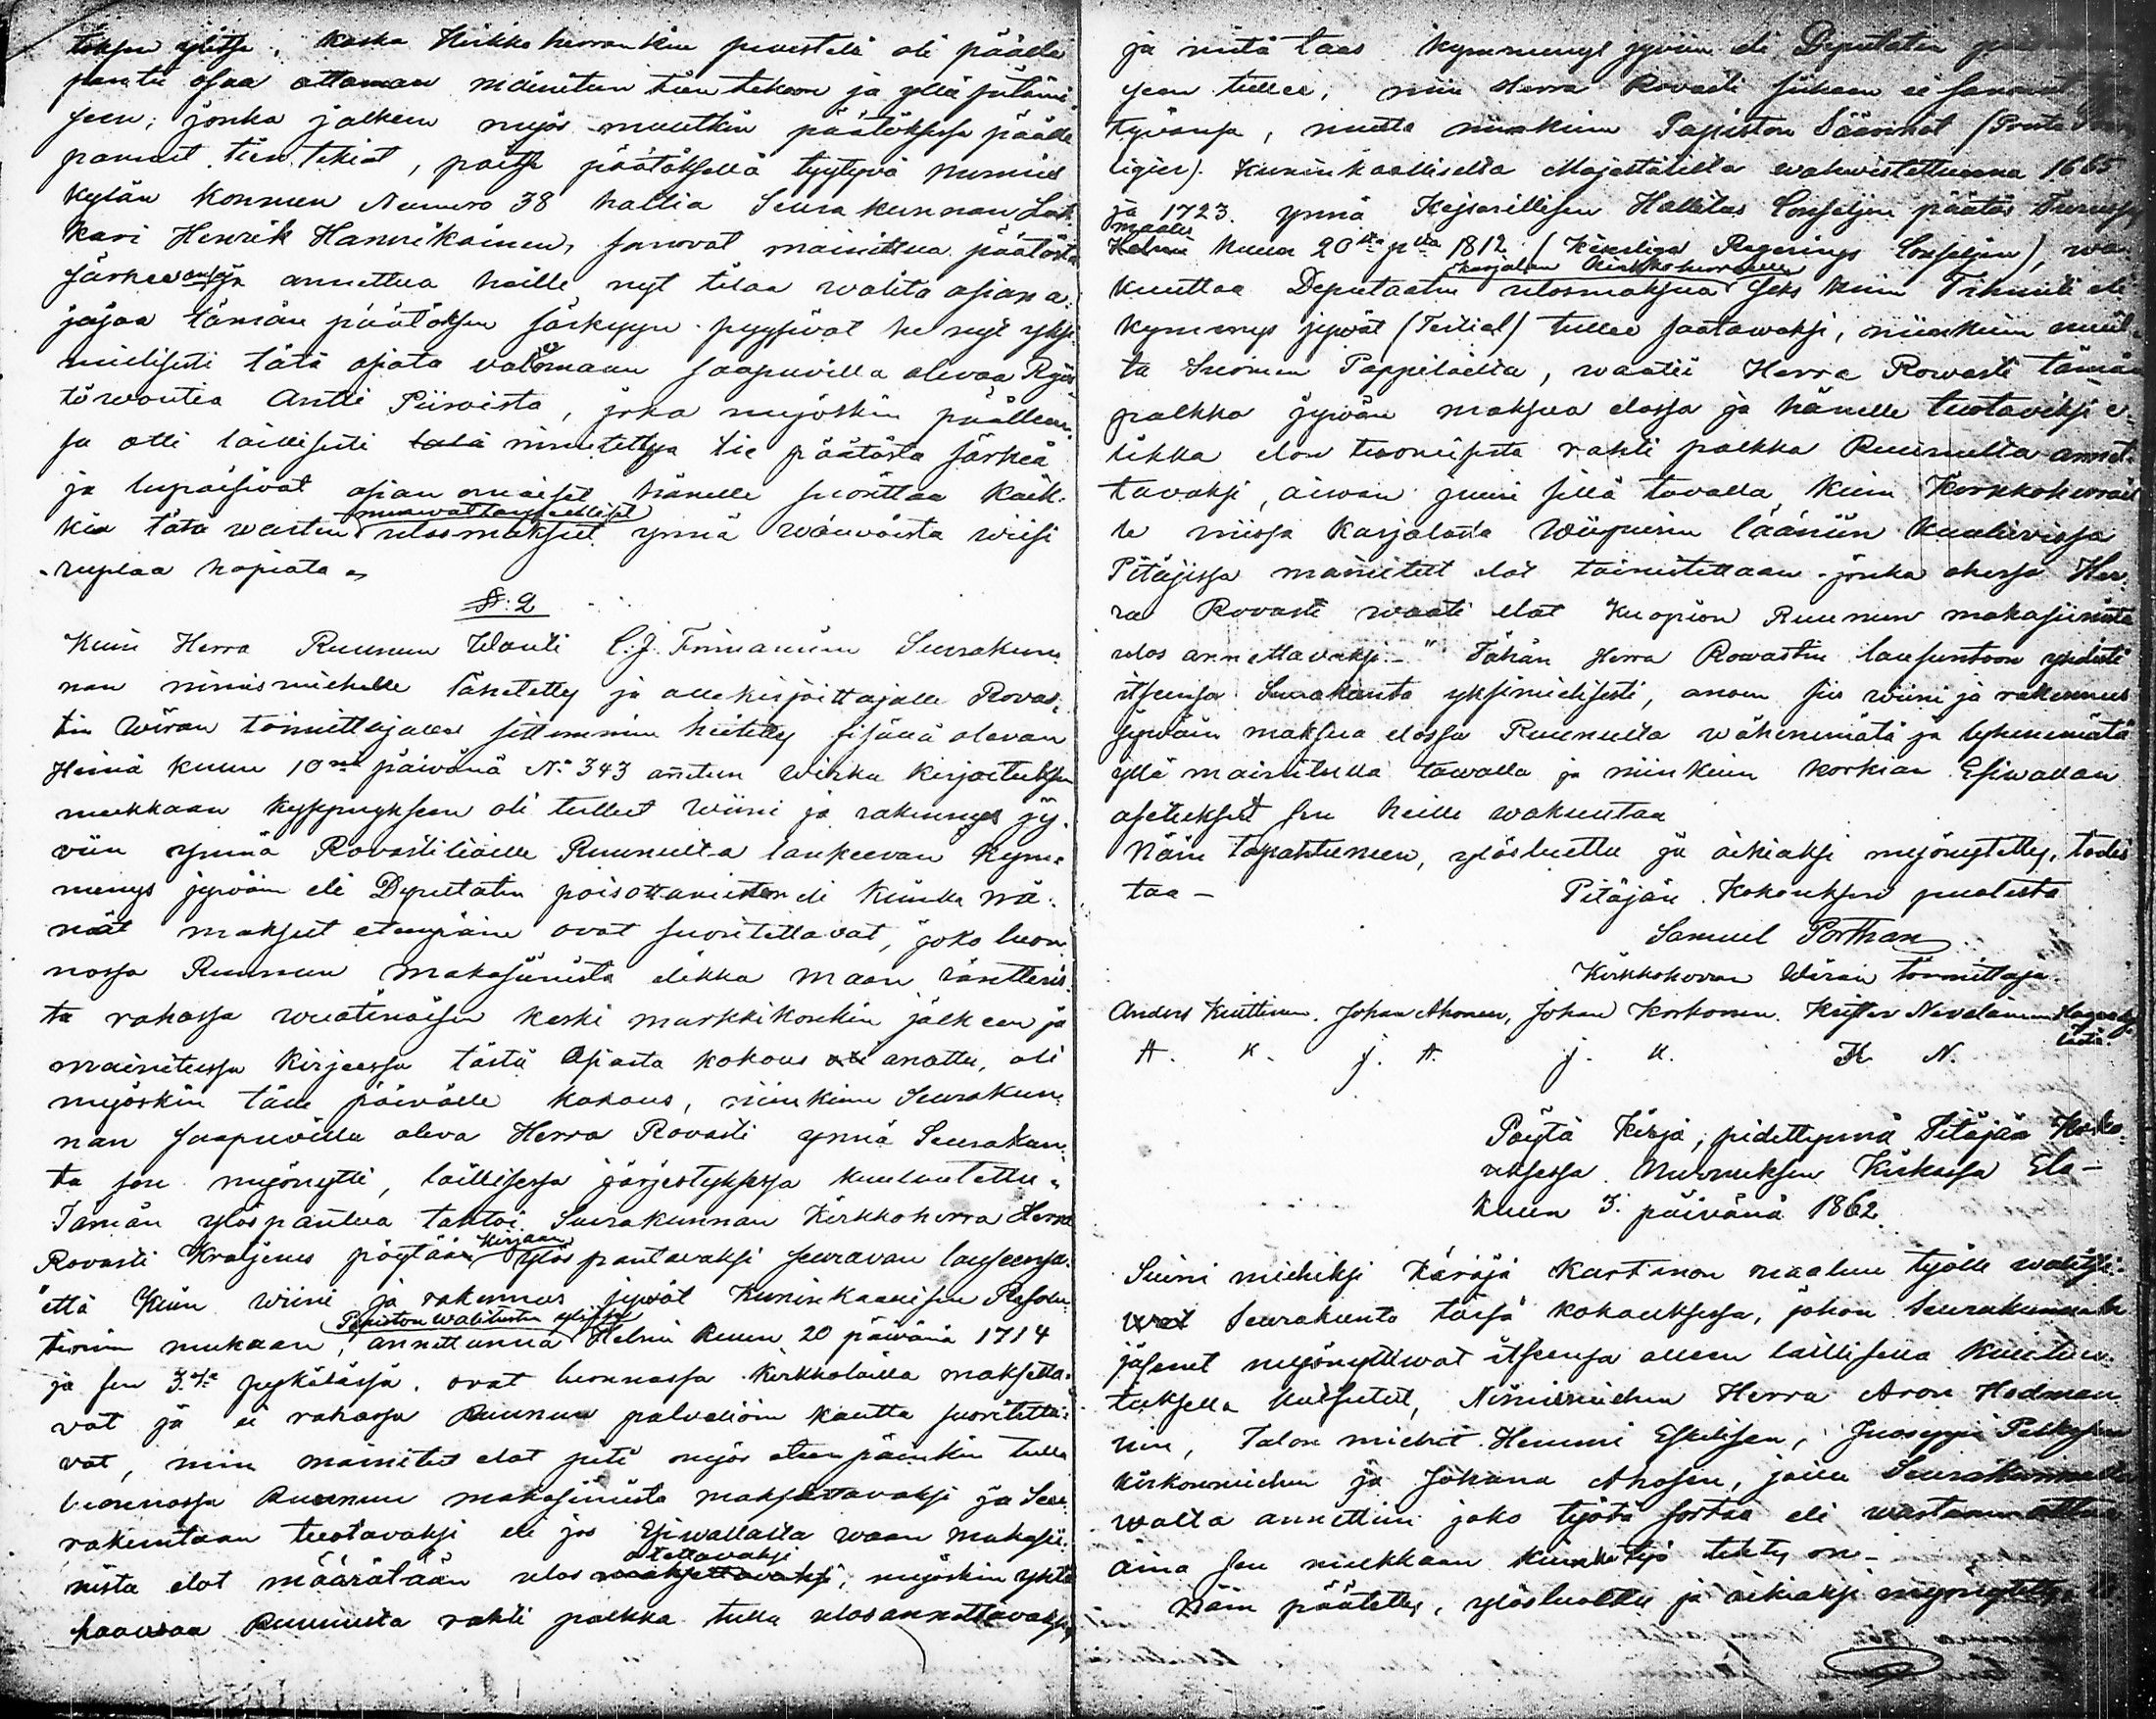 töksen ylitse, koska Kirkkoherrankin puustelli oli päälle
pantu osaa ottamaan mainitun tien tekoon ja yllä pitämi-
seen; jonka jälkeen myös muutkin päätöksessä päälle
pannut tien tekiät, paitse päätöksellä tyytyvä Nurmes
kylän Konnun Numero 38 haltia Seurakunnan Luk-
kari Henrik Hannikainen, sanovat mainittua päätöstä
särkeä ja annettua heille nyt tilaa valita asian a-
jajaa tämän päätöksen särkyyn pyysivät he nyt yksi-
mielisesti tätä asiata valvomaan saapuvilla olevaa
töwoutia Antti Piiroista, joka myöskin päällen-
sä otti laillisesti nimitettyä tie päätöstä särkeä
ja lupaisivat asian omaiset hänelle suorittaa kaik-
kia tätä warten ulosmaksut ynnä waivoista wiisi
ruplaa hopiata
§: 2
Kuin Herra Ruunun Wouti C. J. Trimanin Seurakun-
nan nimismiehelle lähetetty ja allekirjoittajalle Rovas-
tin wiran toimittajalle sittemmin heitetty sisällä olevan
Heinä kuun 10nä päivänä No 343 annetun wirka kirjoituksen
mukkaan kyssymykseen oli tullut wiini ja rakennus jy-
viin ynnä Rovastiloille Ruunulta lankeevan kym-
menys jywäin eli Deputatin poisottamisten eli kuinka nä-
mät maksut etempäin ovat suoritettavat, joko luon-
nossa Ruunun makasiinista elikka maan ränteris-
tä rahassa wuotinaisen keski markkikoukin jälkeen ja
mainitussa kirjeessä tästä Asiasta kokous anottu, oli
myöskin tälle päivälle kokous, niinkuin Seurakun-
nan saapuvilla oleva Herra Rovasti ynnä Seurakun-
ta sen myönytti, laillisessa järjestyksessä kuuluutettu.
Tämän ylöspantua tahtoi Seurakunnan Kirkkoherra Herra
Rovasti Kraljenus pöytään Kirjaan ylös pantavaksi seuravan lauseensa
"että Kuin wiini ja rakennus jywät Kuninkaallisen Resolu-
tionin mukaan, Papiston walitusten ylitse annettunna Helmi Kuun 20 päivänä 1714
ja sen 3:ssa pykälässä, ovat luonnossa kirkkoloilla maksetta-
vat ja ei rahassa Ruunun palveliöin kautta suoritetta-
vat, niin mainitut elot pitä myös eteenpäinkin tulla
luonnossa Ruunun makasiinista maksettavaksi ja Seu-
rakuntaan tuotavaksi eli jos Esiwallalta waan makasii-
nista elot määrätään ulos otettavaksi, myöskin yhtä
haavaa Ruunulta rahti palkka tulla ulosannettavaksi
ja mitä taas kymmenys jyviin eli Deputatin
seen tullee, niin Herra Rovasti siihen ei sanonut
tyväysä, mutta niinkuin Papiston Säännöt
ligier). Kuninkaalliselta Majestätiltä wahwistettunna 1665
ja 1723. ynnä Kejsarillisen Hallitus Conseljin päätös Turussa
maalis Kuun 20tä pnä 1812 (Kejserliga Regerings Conseljin), wa-
kuuttaa Deputaatin ulosmaksua Karjalan Kirkkoherroille seks kuin Trihunti eli
kymenys jywät (Tertial) tullee saatawaksi, niinkuin muil-
ta Suomen Pappiloilta, waatii Herra Rowasti tämän
palkka jywän maksua elossa ja hänelle tuotaviksi e-
likka elon tuomiisesta rahti palkka Ruunulta annet-
tavaksi, aiwan juuri sillä tavalla kuin Kirkkoherroil-
le niissä Karjalasta Wiipurin lääniin kuuluvissa
Pitäjissä mainitut elot toimitettaan. jonka ohessa Her-
ra Rovasti waati elot Kuopion Ruunun makasiinista
ulos annettavaksi. — " Tähän Herra Rowastin lausuntoon yhdisti
itsensä Seurakunta yksimielisesti, anoen siis wiini ja rakennus
jywäin maksua elossa Ruunulta wähenemätä ja lyhenemätä
yllä mainitulla tawalla ja niinkuin korkian Esiwallan
asetukset sen heille wakuuttaa
Näin tapahtuneen, ylösluettu ja oikiaksi myönytetty, todis-
taa —
Pitäjän Kokouksen puolesta
Samuel Porthan
Kirkkoherran Wiran toimittaja.
Anders Kinttinen. Johan Ahonen, Johan Korhonen. Krister Nevalainen
A. K. J. A. J. K. K. N.
Pöytä Kirja, pidettynnä Pitäjän Koko-
uksessa Nurmeksen Kirkossa Elo-
kuun 3. päivänä 1862.
Suini miehiksi Käräjä kartanon maalun työlle walitsi
Seurakunta tässä kokouksessa, johon Seurakunnan
jäsenet myönyttiwät itsensä olleen laillisella kuulu-
tuksella kutsutut, Nimismiehen Herra Aron Hedman-
nin, Talon miehet Hemmi Eskelisen, Juoseppi Pelkosen
kirkonmiehen ja Johana Ahosen, joille Seurakunnalta
walta annettiin joko työtä sortaa eli wastaan ottaa
aina sen mukkaan kuinka työ tehty on —
Näin päätetty, ylösluettu ja oikiaksi myönytetty